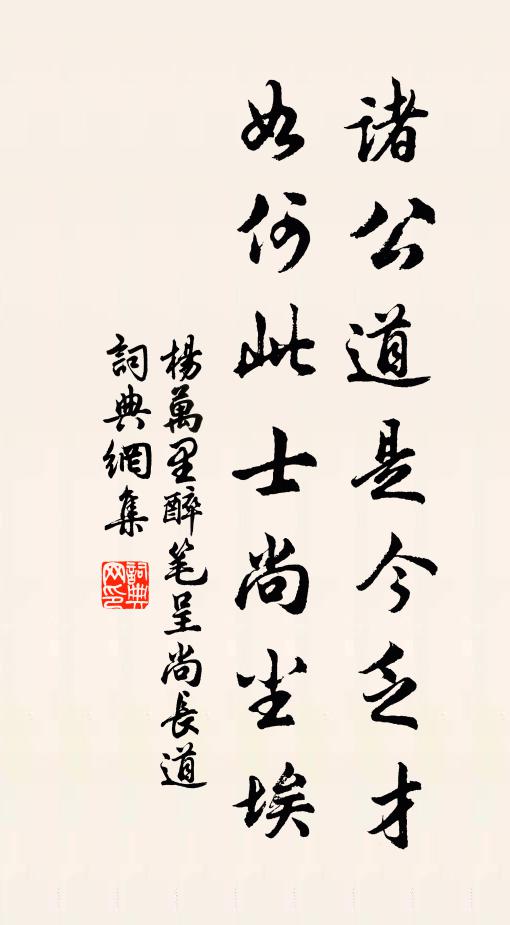 諸公道是今乏才
如何此士尚尘埃
楊萬里醉笔呈尚長道
詞典網集
詞典网印